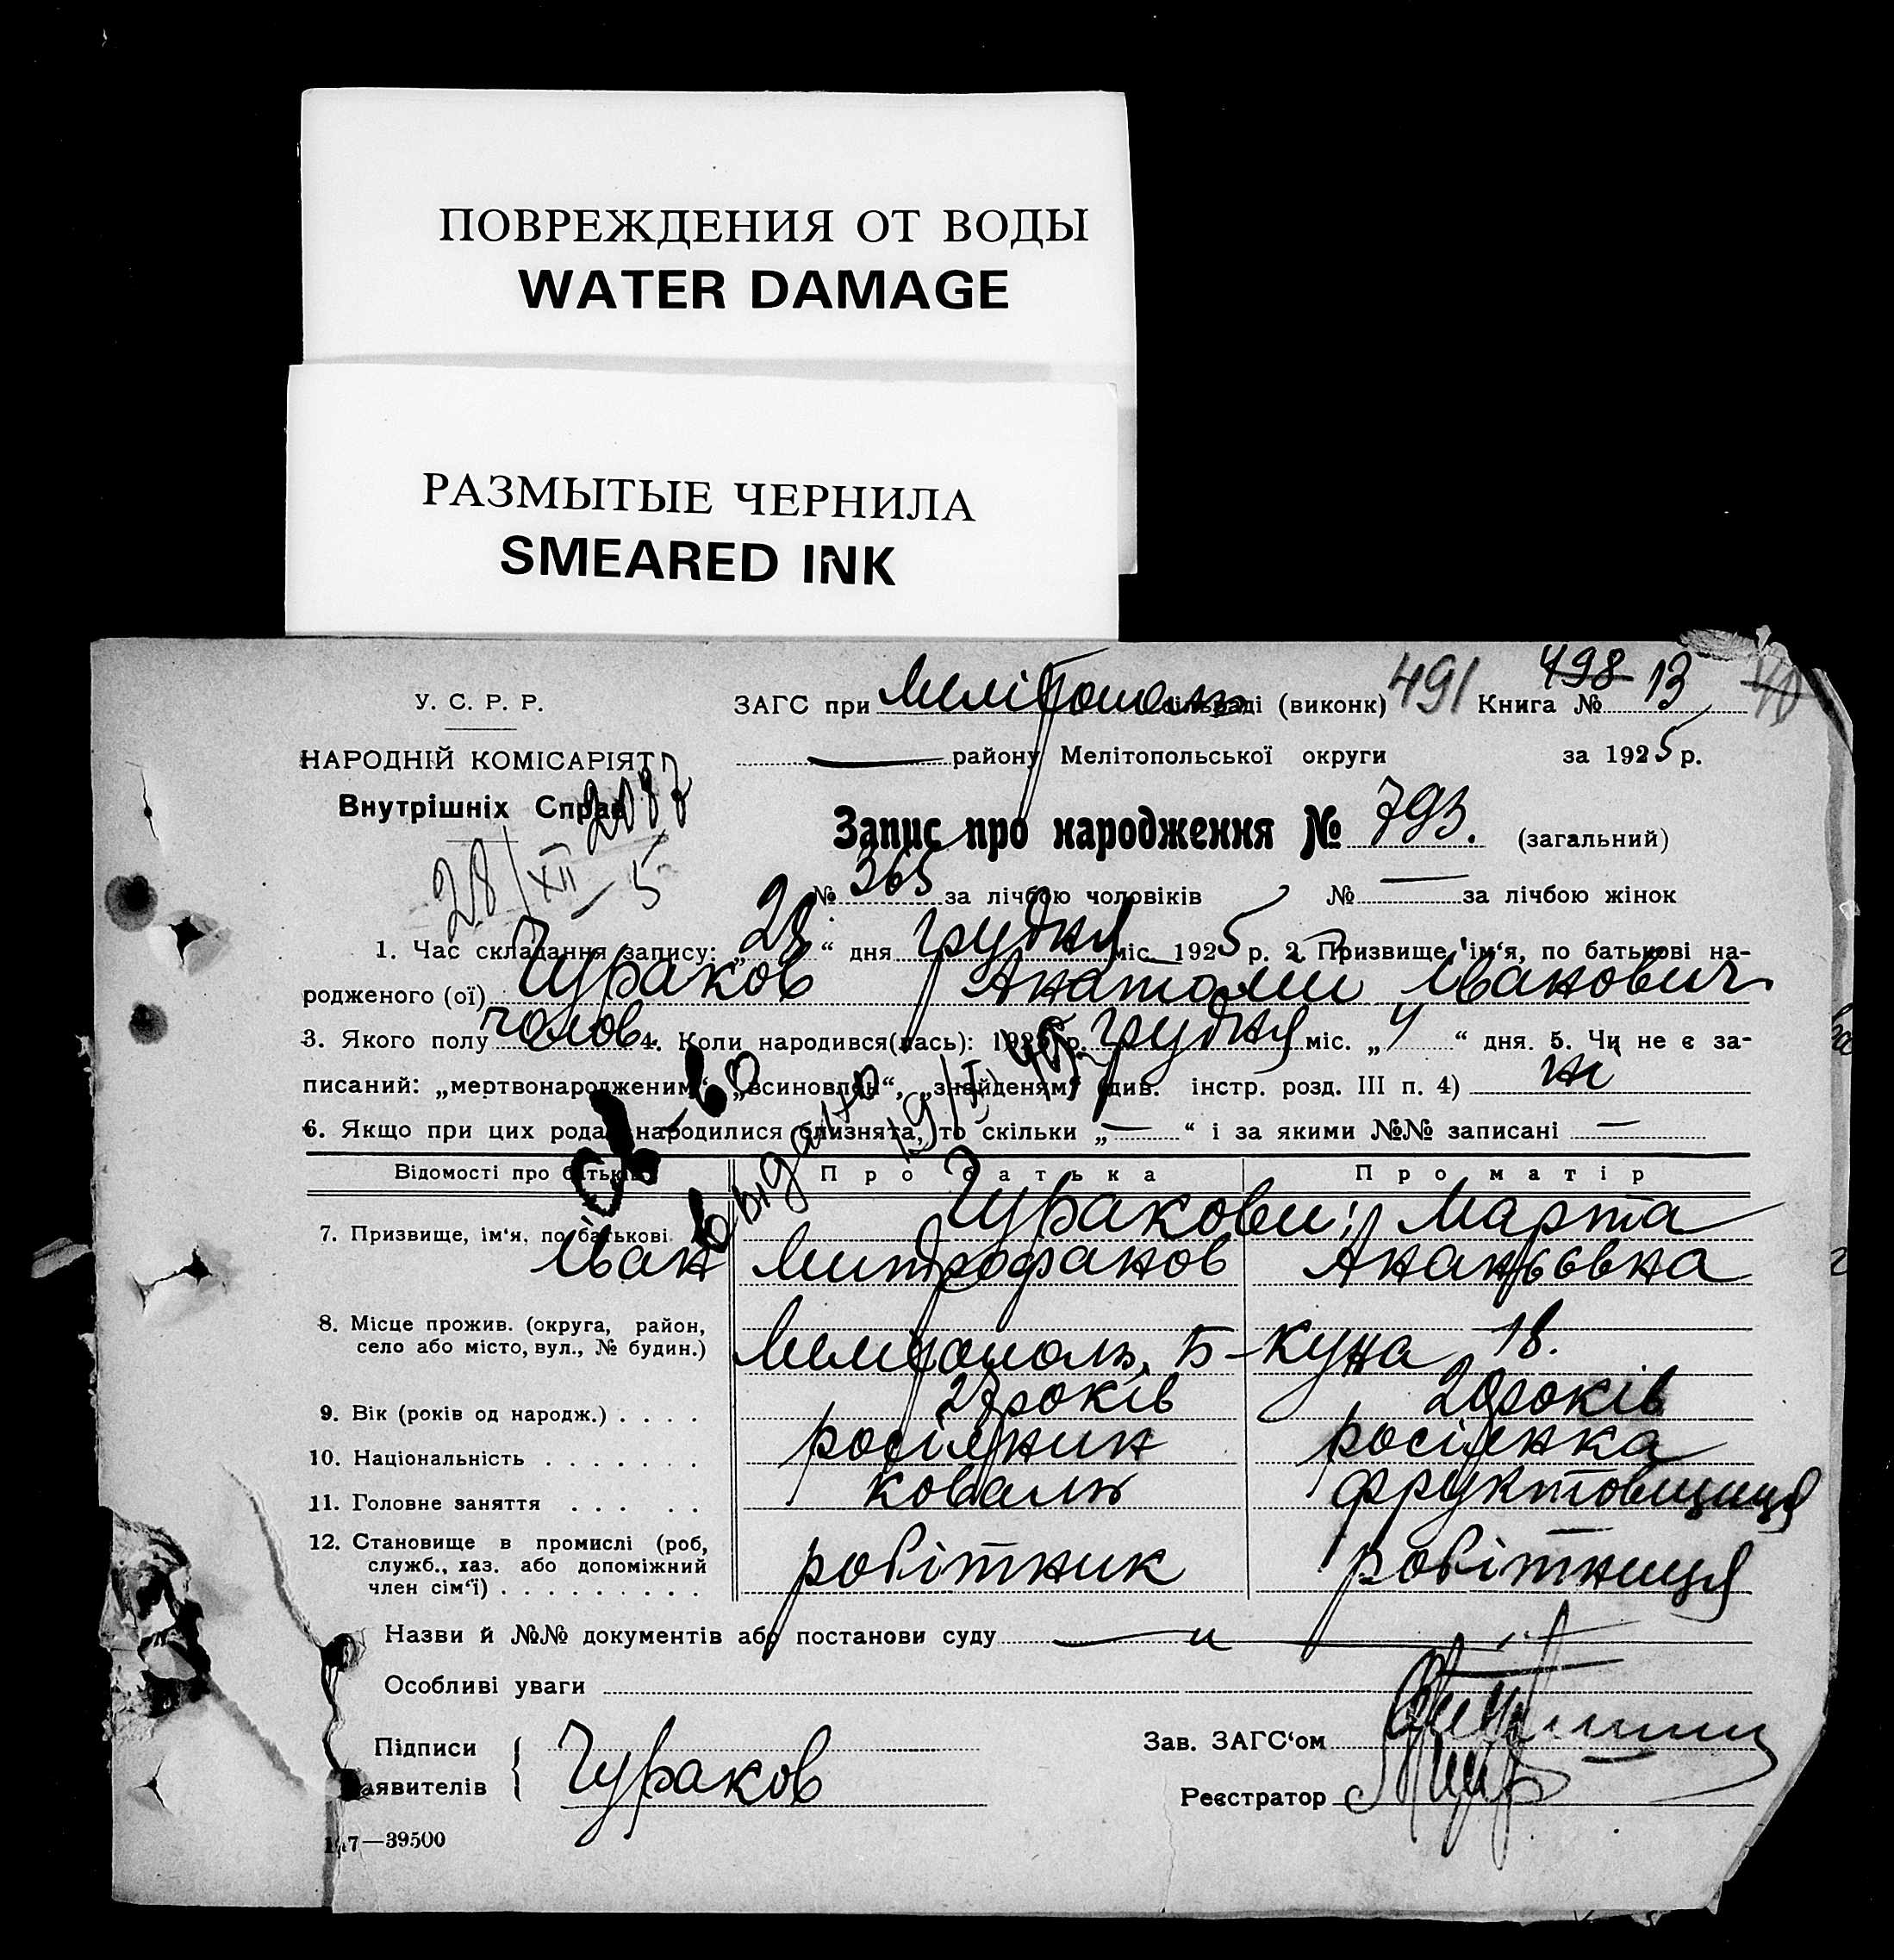 ПОВРЕЖДЕНИЯ ОТ ВОДЫ
WATER DAMAGE
РАЗМЫТЫЕ ЧЕРНИЛА
SMEARED INK
У. С. Р. Р.
НАРОДНІЙ КОМІСАРІЯТ
Внутрішніх Справ
28/XII – 5
ЗАГС при Мелітополь сільраді (виконк) 491 Книга № 498 13
районy Мелітопольської округи за 1925 р.
Запис про народження № 793. (загальний)
№ 365 за лічбою чоловіків № — за лічбою жінок
1. Час складання запису: „28“ дня грудня міс. 1925 р. 2. Призвище, ім‘я, по батькові на-
родженого (ої) Чураков Анатолии Иванович
3. Якого полу чолов. 4. Коли народився(лась): 1925 р. грудня міс. „4“ дня. 5. Чи не є за-
писаний: „мертвонародженим“, „всиновлен“, „знайденям“ (див. інстр. розд. III п. 4) ні
6. Якщо при цих родах народилися близнята, то скільки „—“ і за якими №№ записані —
видано 19/I
Відомості про батьків Про батька Про матір
7. Призвище, ім‘я, по батькові Чуракови: Марта
Иван Митрофанов Ананьевна
8. Місце прожив. (округа, район,
село або місто, вул., № будин.) Мелитополь, Б-Куна 18.
9. Вік (років од народж.) . . . . 27 років 20 років
10. Національність . . . . . . . росіянин росіянка
11. Головне заняття . . . . . коваль фруктовщиця
12. Становище в промислі (роб,
служб., хаз. або допоміжний
член сім‘ї) . . . . . . . . . робітник робітниця
Назви й №№ документів або постанови суду
Особливі уваги
Підписи
Заявителів Чураков
Зав. ЗАГС‘ом
Реєстратор
—39500